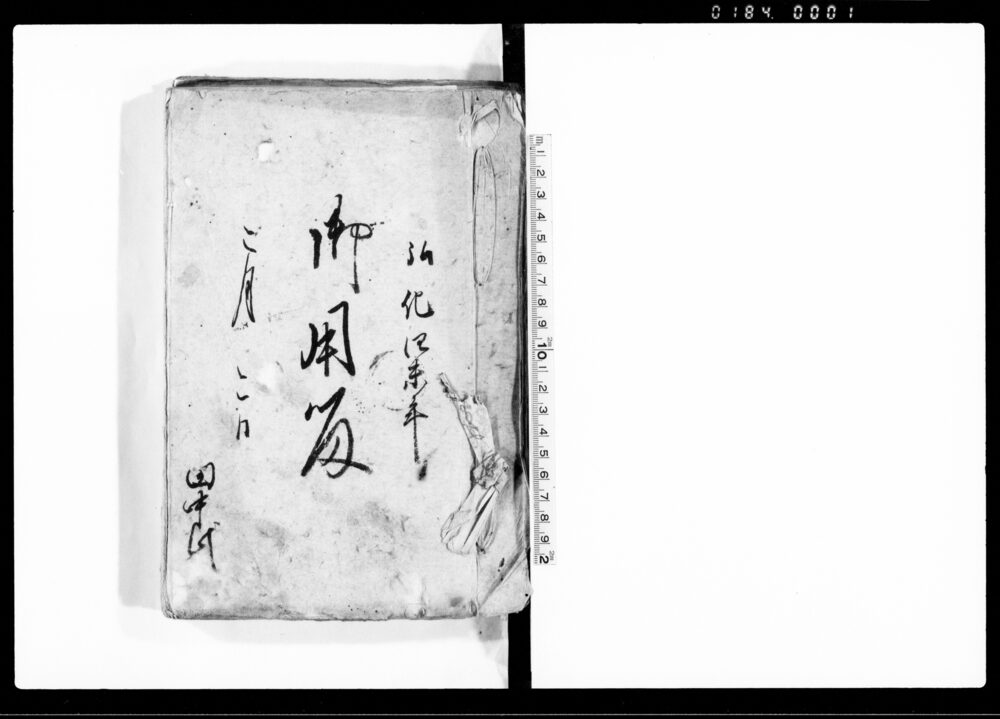 0184. 0001
弘化四未年
御用留
二月 六日
田中氏
1 2 3 4 5 6 7 8 9 10 1 2 3 4 5 6 7 8 9 2